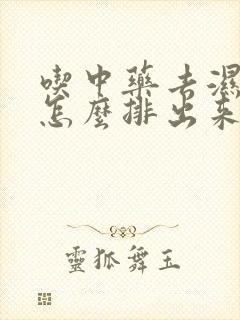 喫中藥去濕
怎麼排出來
靈狐舞玉